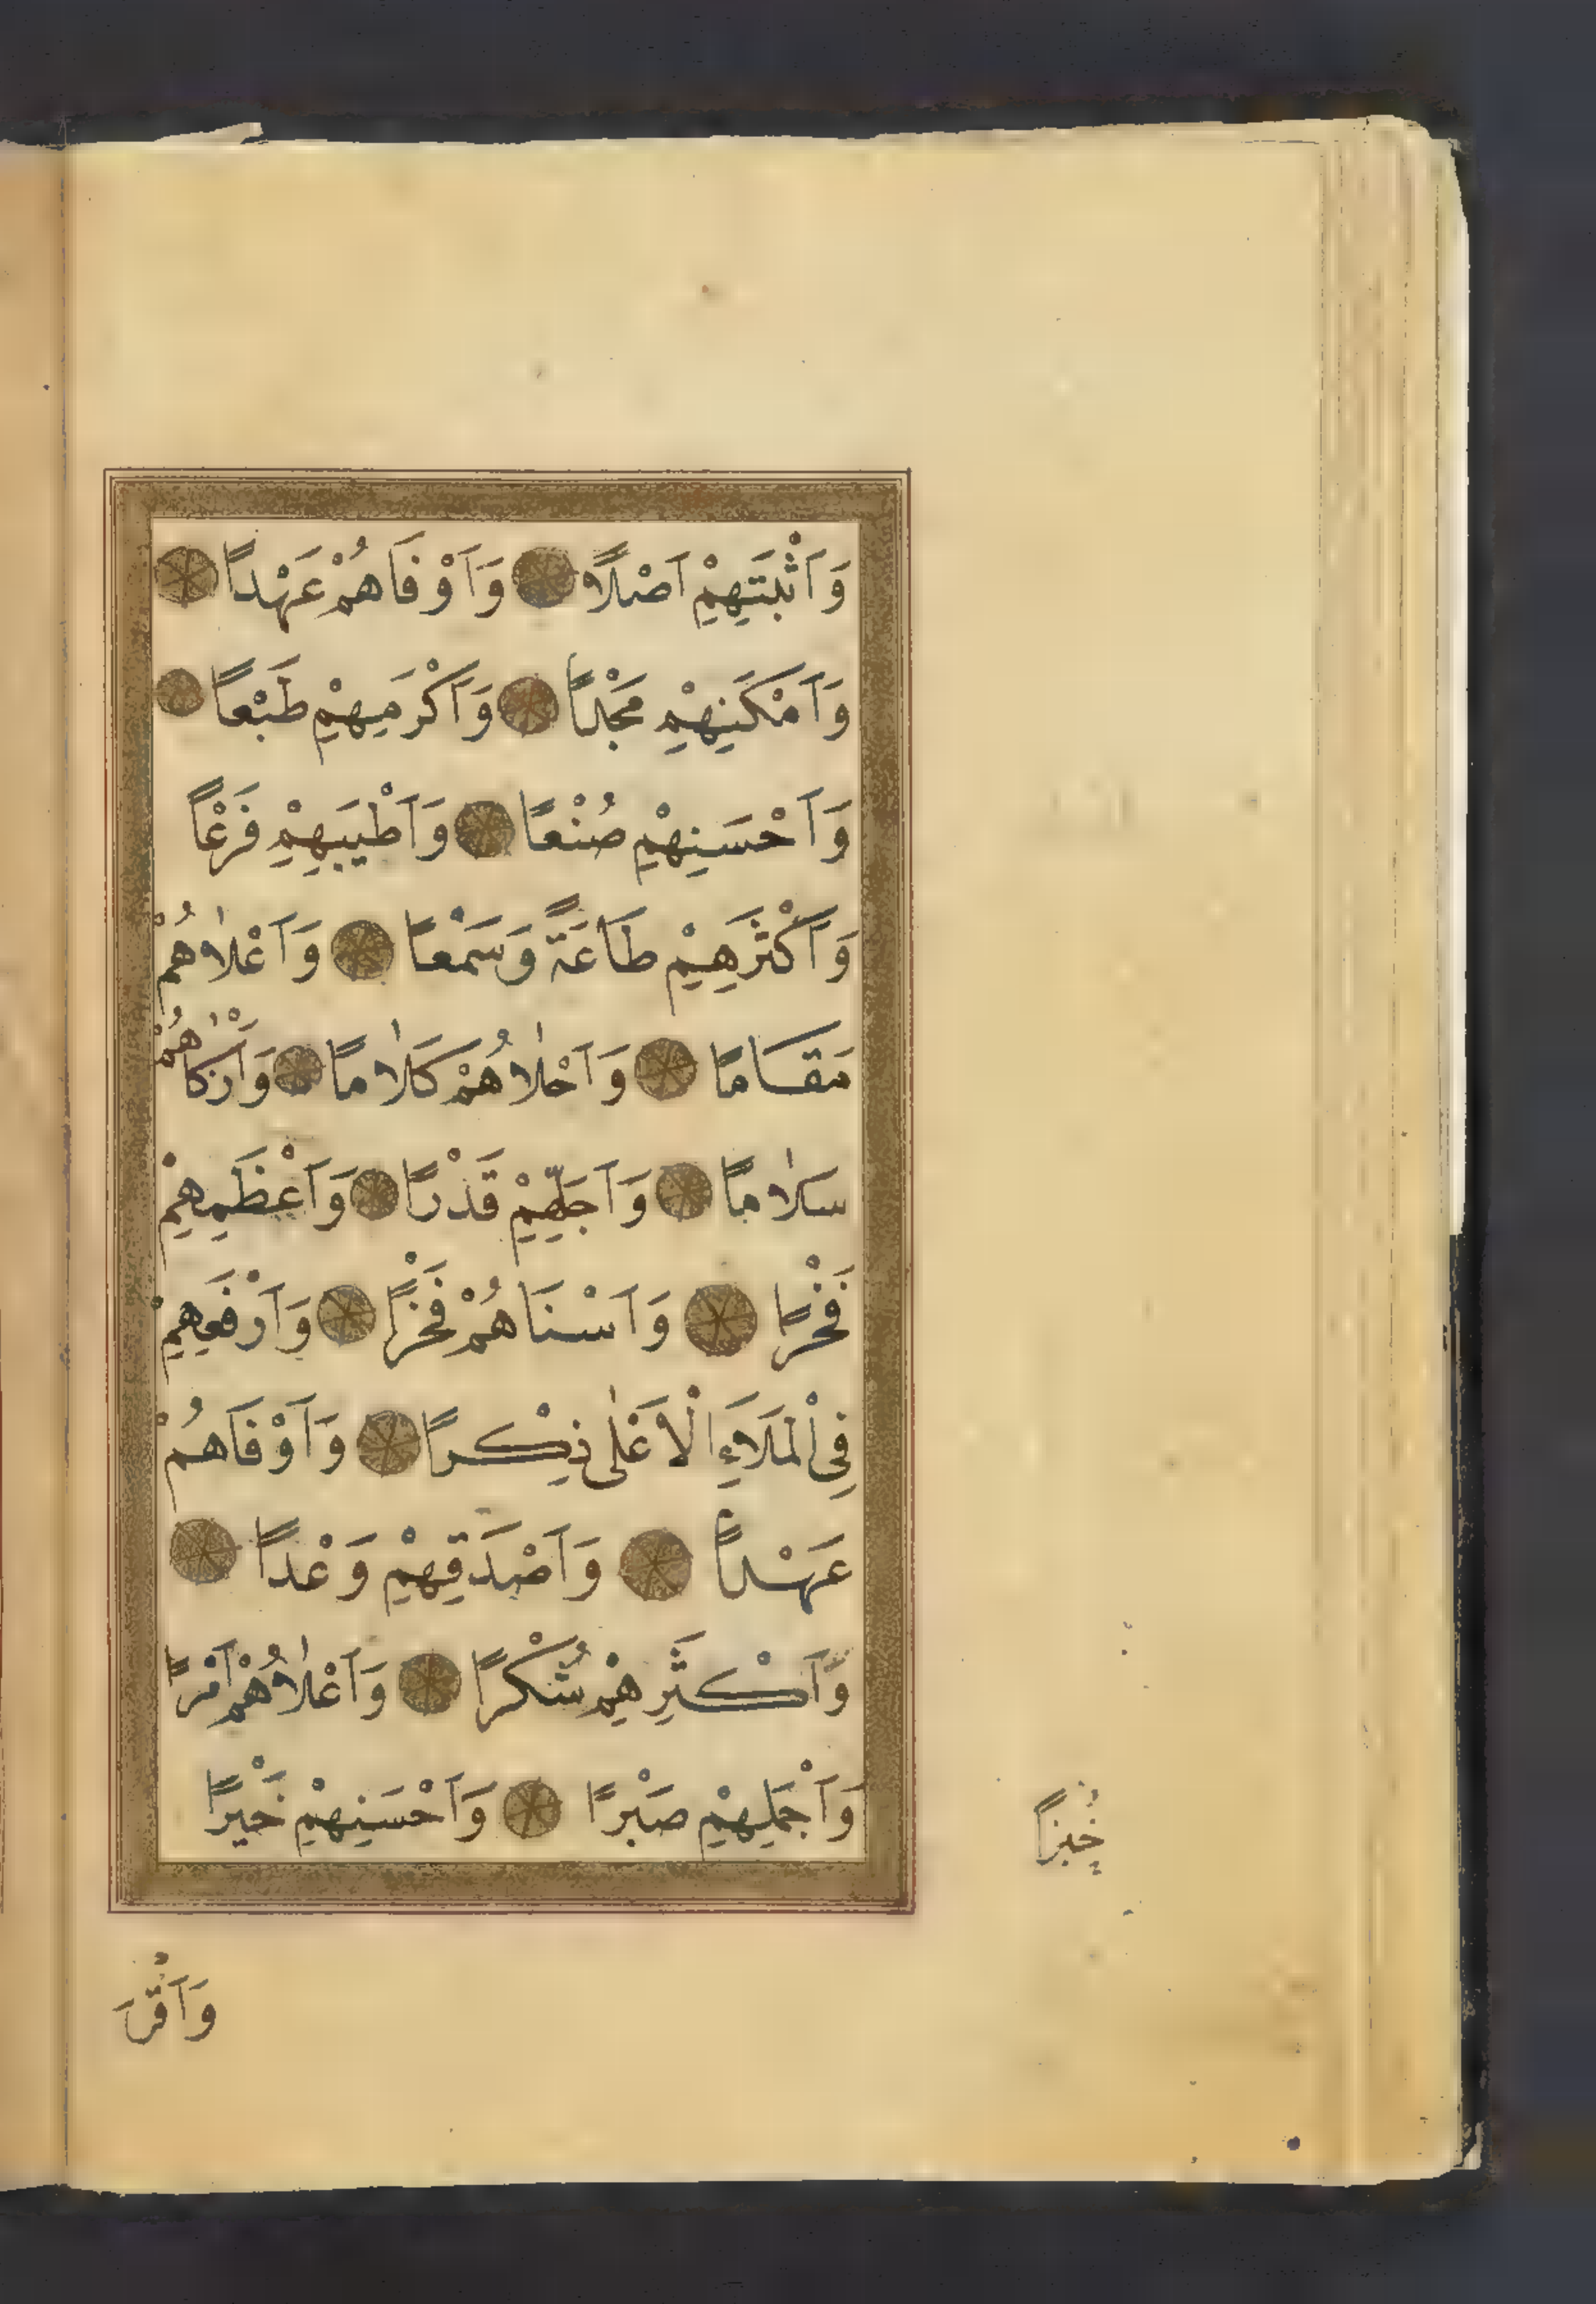 وَاَثْبَتِهِمْ اَصْلاً وَاَوْفَاهُمْ عَهْداً
وَاَمْكَنِهِمْ مَجْداً وَاَكْرَمِهِمْ طَبْعاً
وَاَحْسَنِهِمْ صُنْعاً وَاَطْيَبِهِمْ فَرْعاً
وَاَكْثَرِهِمْ طَاعَةً وَسَمْعاً وَاَعْلاٰهُمْ
مَقَاماً وَاَحْلاٰهُمْ كَلاٰماً وَاَزْكَاهُمْ
سَلاٰماً وَاَجَلِّهِمْ قَدْراً وَاَعْظَمِهِمْ
فَخْراً وَاَسْنَاهُمْ فَخْراً وَاَرْفَعِهِمْ
فِى الْمَلَاءِ الْاَعْلٰى ذِكْراً وَاَوْفَاهُمْ
عَهْداً وَاَصْدَقِهِمْ وَعْداً
وَاَكْثَرِهِمْ شُكْراً وَاَعْلاٰهُمْ اَمْراً
وَاَجْمَلِهِمْ صَبْراً وَاَحْسَنِهِمْ خَيْراً
خُبْراً
وَاَقْرَ